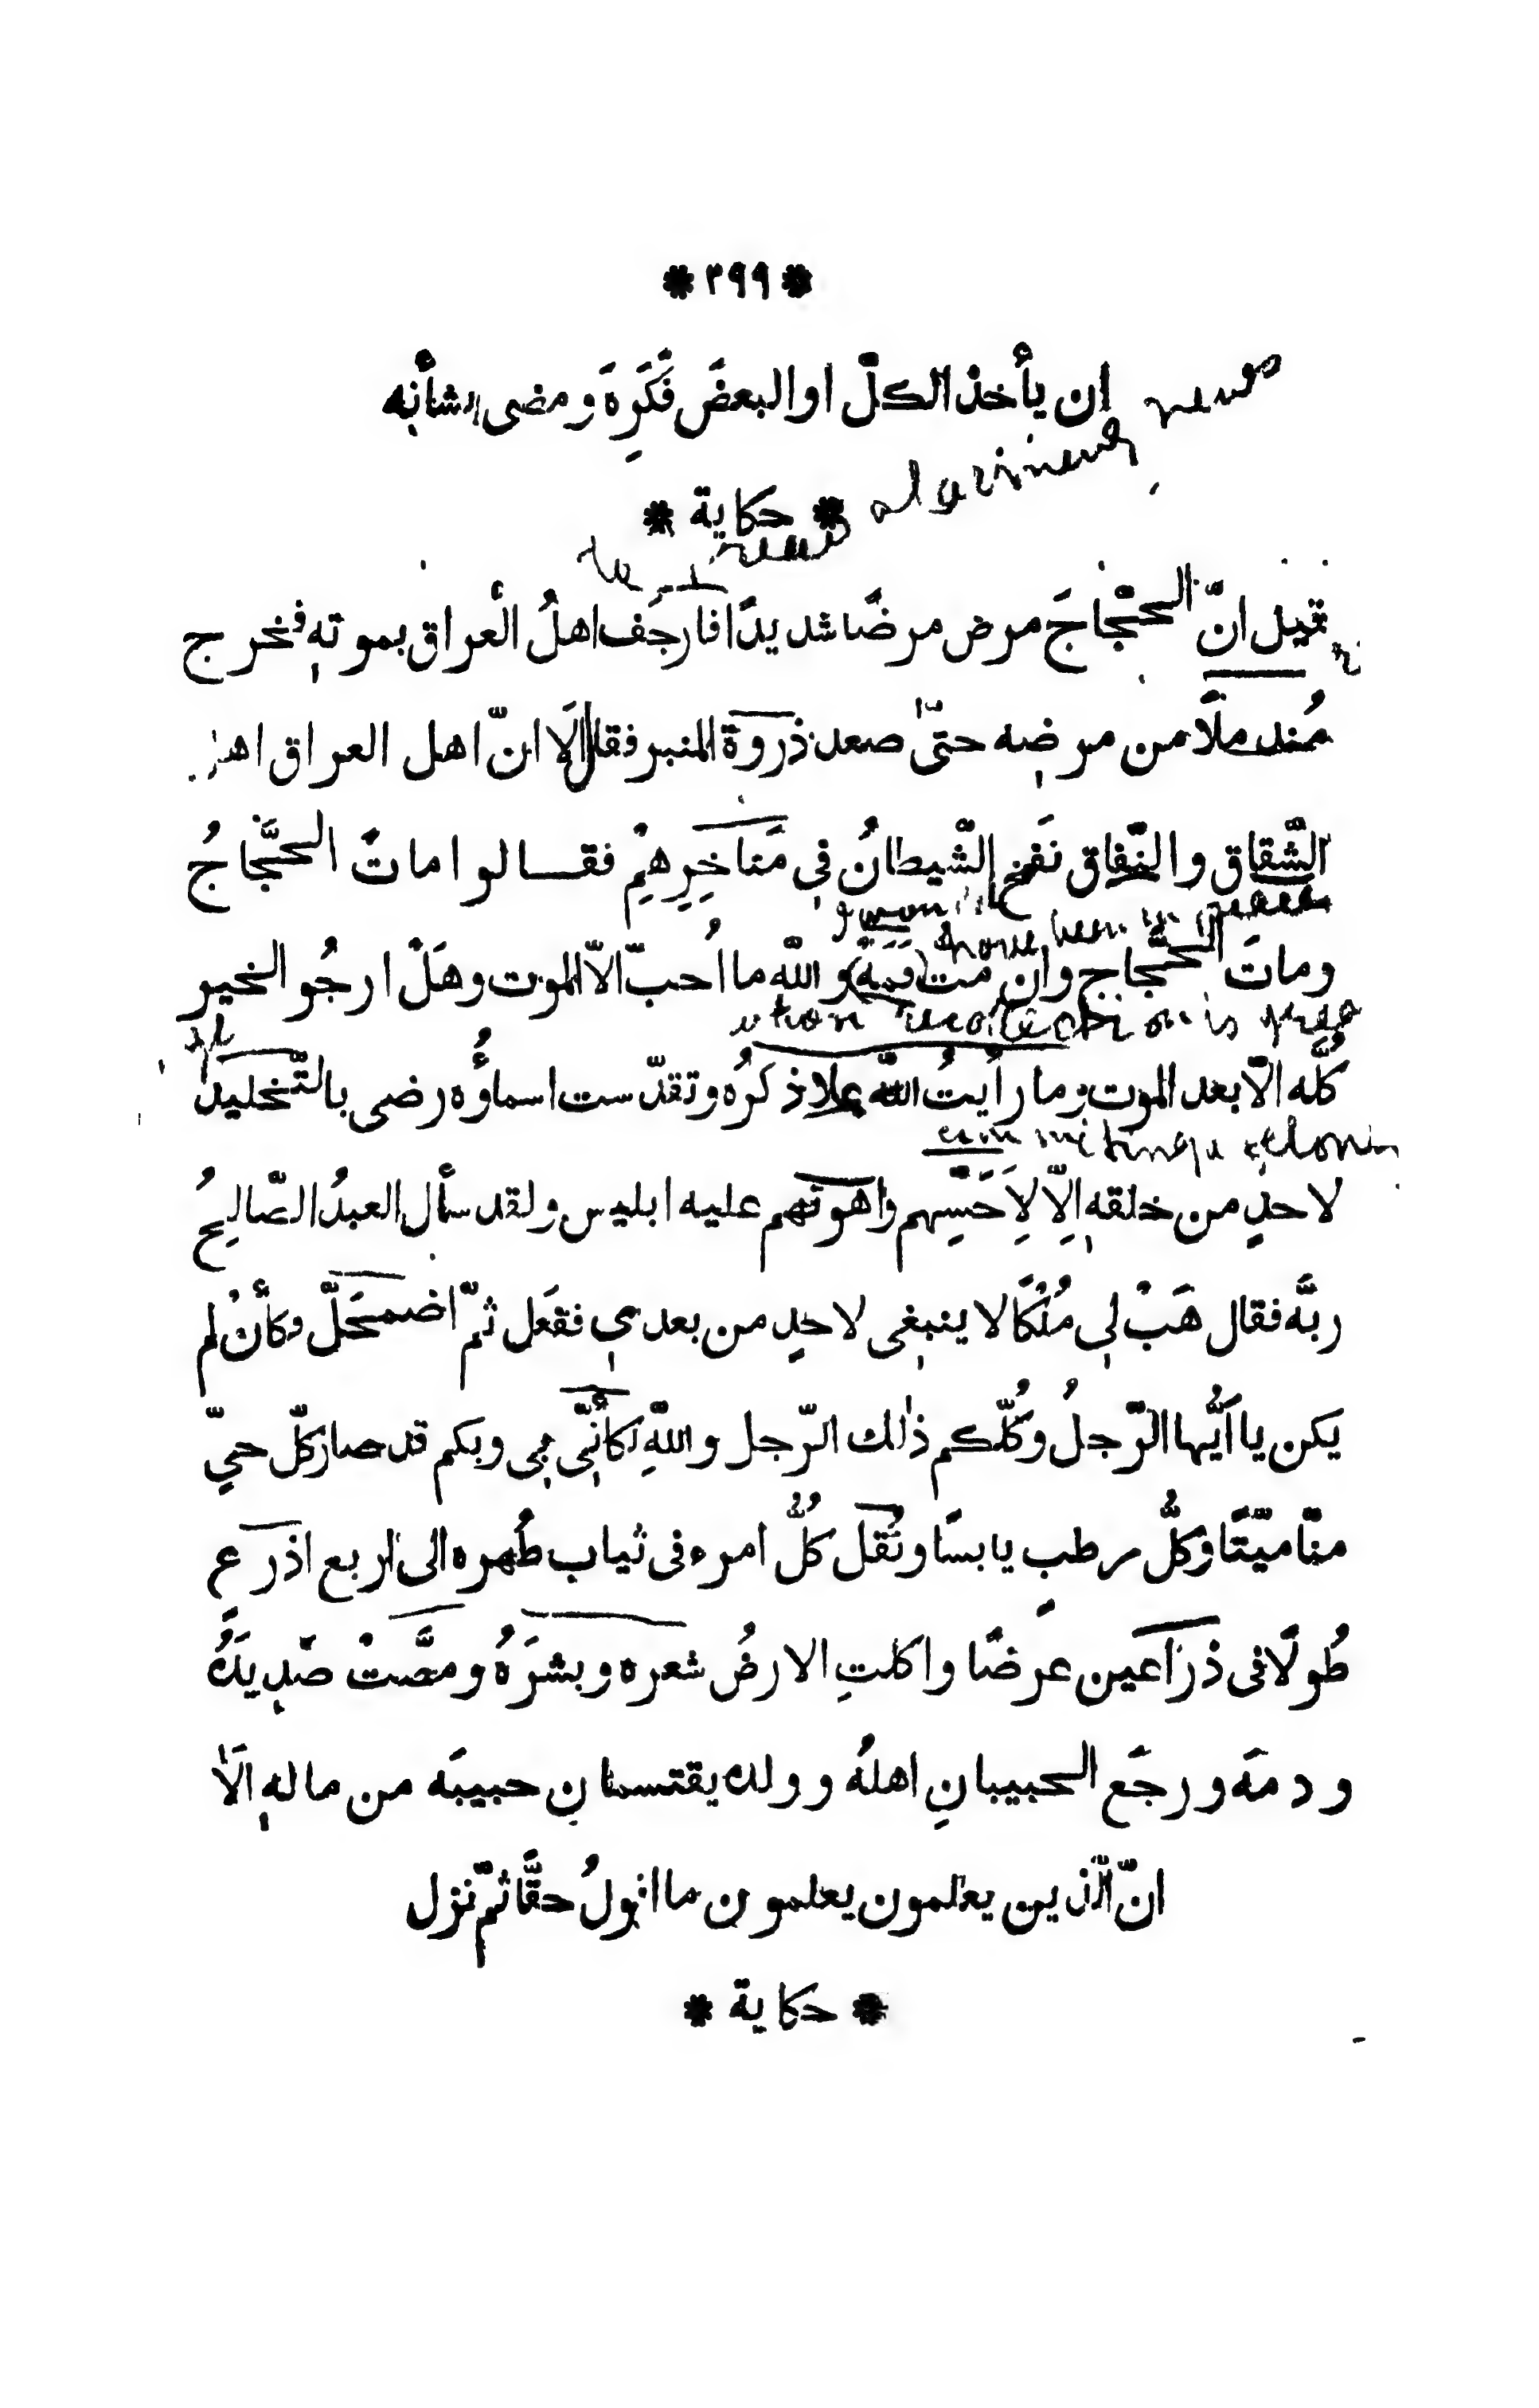 * ٢٩٩ *
ان يأخذ الكلّ او البعضَ فَكَرِهَ ومضى لشأنِه
* حكاية *
قيل انّ الحجّاجَ مرض مرضًا شديدًا فارجَف اهلُ الْعراق بموتهِ فخرج
مُندملًا من مرضِه حتّى صعد ذروة المنبر فقال اَلَا انّ اهل العراق اهل
الشّقاق والنّفاق نَفخ الشّيطانُ فِي مَناخِرِهِمْ فقالوا ماتَ الحجَّاجُ
وماتَ الحجّاج وان متّ (فَمَهْ) واللّه ما اُحبّ الّا الموت وهَلْ ارجُو الخير
كُلَّه الّا بعد الموت وما رأيتُ اللّه علا ذكرُه وتقدّست اسماؤُه رضى بالتّخليد
لاحدٍ من خلقهِ اِلّا لِاَخَسِّهم واهونهم عليه ابليس ولقد سأل العبدُ الصّالِحُ
ربَّه فقال هَبْ لِي مُلْكًا لا ينبغِى لاحدٍ من بعدي ففعَل ثمّ اضمحَلّ وكأنْ لم
يكن يا اَيُّها الرّجلُ وكُلّكم ذٰلك الرّجل واللّهِ لكأنِّى بِى وبكم قد صار كلّ حيٍّ
منّا ميّتًا وكلُّ رطبٍ يابسًا ونُقل كُلُّ امرء فى ثياب طُهره الى اربع اذرعٍ
طُولًا فى ذراعين عرضًا واكلتِ الارضُ شعره وبشرَهُ ومصَّتْ صَدِيدَهُ
ودمَه ورجَع الحبيبانِ اهلهُ وولده يقتسمان حبيبَه من مالهِ اَلَا
انّ الّذين يعلمون يعلمون ما اقولُ حقًّا ثمّ نزل
* حكاية *